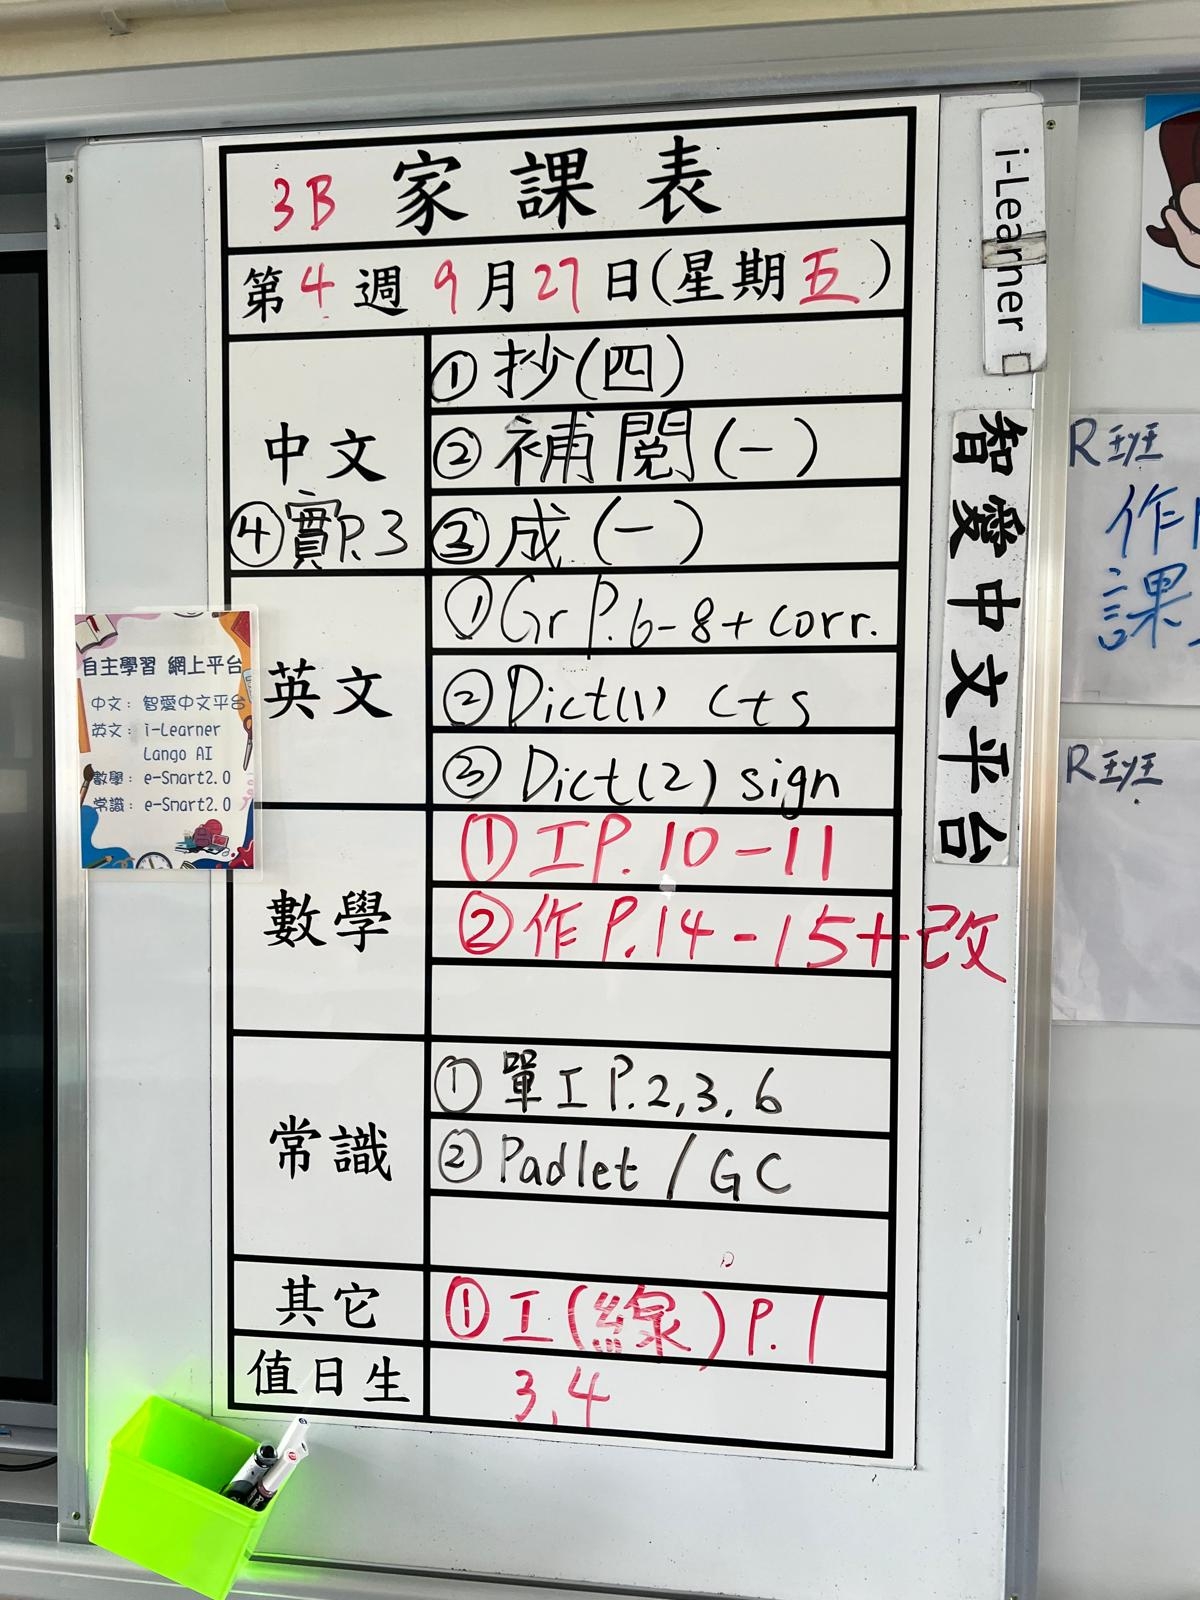 3B 家課表
第4週 9月27日(星期五)
中文
① 抄(四)
② 補閱(一)
③ 成(一)
④ 實P.3
英文
① Gr P.6-8+corr.
② Dict(1) cts
③ Dict(2) sign
數學
① 工P.10-11
② 作P.14-15+改
常識
① 單工P.2,3,6
② Padlet / GC
其它
① 工(線)P.1
值日生
3,4
自主學習 網上平台
中文: 智愛中文平台
英文: i-Learner
Lango AI
數學: e-Smart2.0
常識: e-Smart2.0
i-Learner
智愛中文平台
R班
作
課
R班